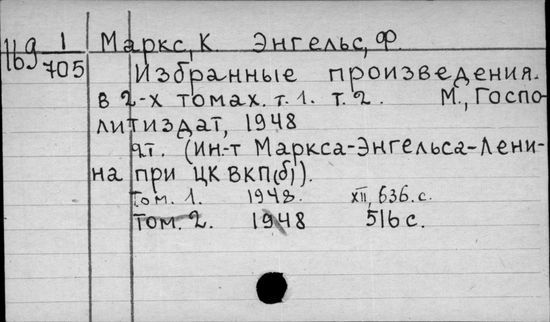 Маркс, К. Энгельс, Ф.
1б9 1/705
Избранные произведения.
в 2-х томах. т. 1. т. 2. М., Госпо-
литиздат, 1948
(Ин-т Маркса-Энгельса-Лени-
на при ЦК ВКП(б)).
Том. 1. 1948. XII, 636. с.
Том. 2. 1948 516 с.